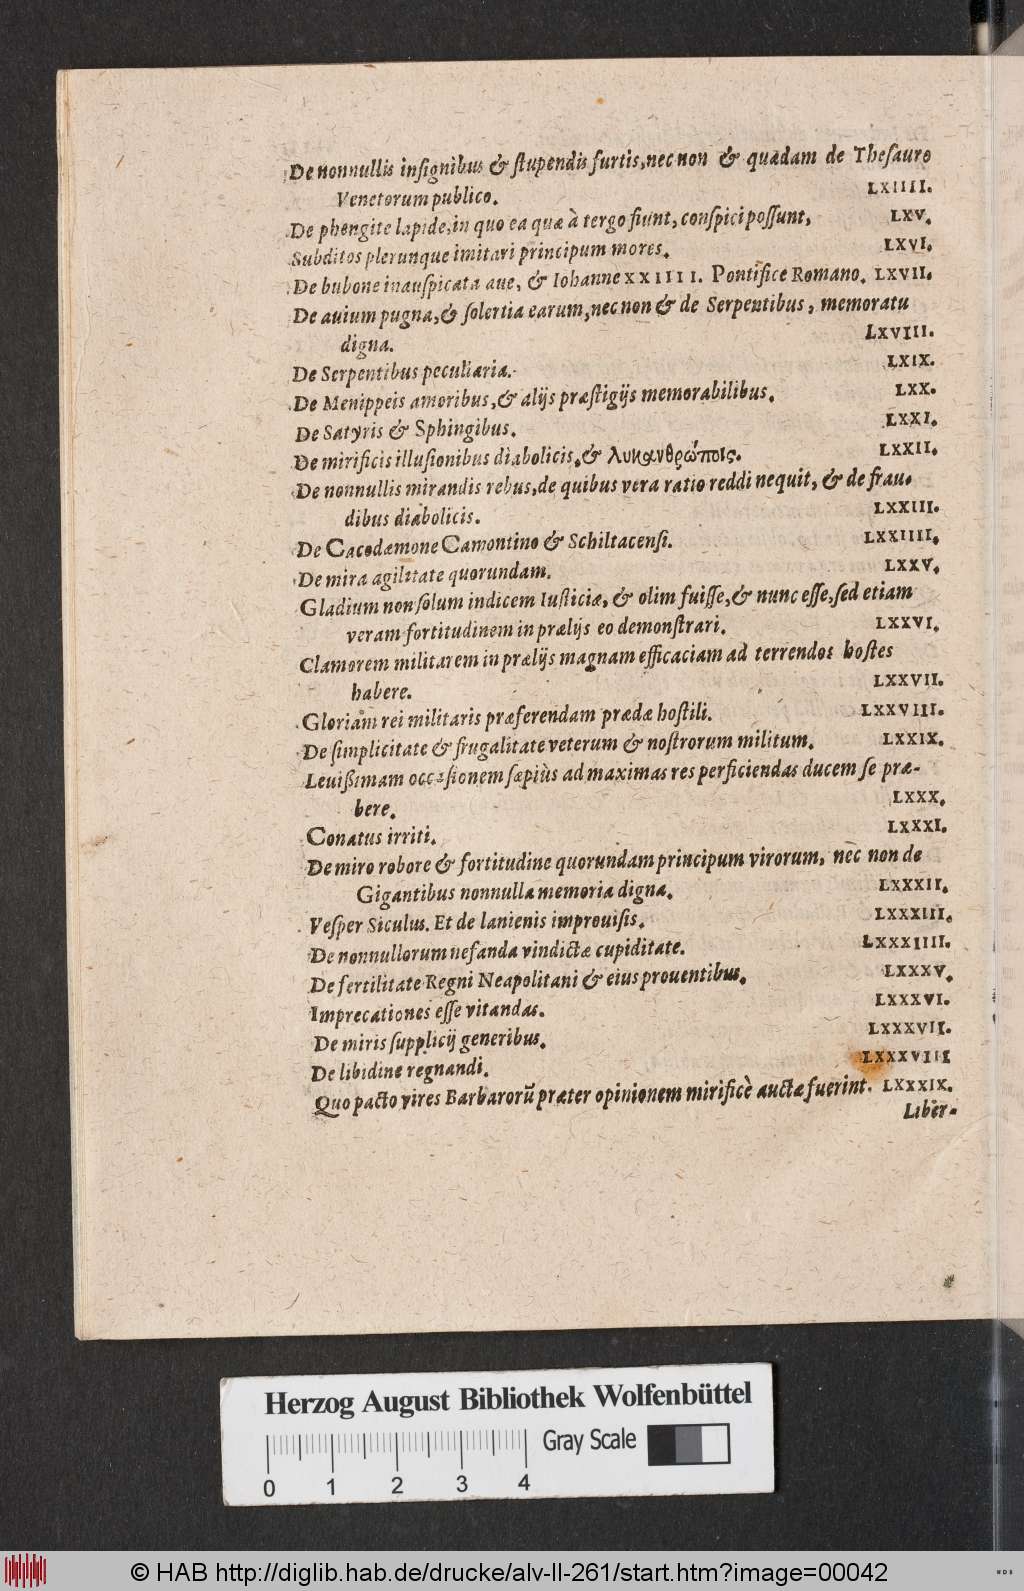 De nonnullis inſignibus & ſtupendis furtis, nec non & quædam de Theſauro
Venetorum publico. LXIIII.
De phengite lapide, in quo ea quæ à tergo fiunt, conſpici poſſunt, LXV.
Subditos plerunque imitari principum mores. LXVI.
De bubone inauſpicata aue, & Iohanne XXIIII. Pontifice Romano. LXVII.
De auium pugna, & ſolertia earum, nec non & de Serpentibus, memoratu
digna. LXVIII.
De Serpentibus peculiaria. LXIX.
De Menippeis amoribus, & alijs præſtigijs memorabilibus. LXX.
De Satyris & Sphingibus. LXXI.
De mirificis illuſionibus diabolicis, & λυκανθρώποις. LXXII.
De nonnullis mirandis rebus, de quibus vera ratio reddi nequit, & de frau-
dibus diabolicis. LXXIII.
De Cacodæmone Camontino & Schiltacenſi. LXXIIII.
De mira agilitate quorundam. LXXV.
Gladium non ſolum indicem Iuſticiæ, & olim fuiſſe, & nunc eſſe, ſed etiam
veram fortitudinem in prælijs eo demonſtrari. LXXVI.
Clamorem militarem in prælijs magnam efficaciam ad terrendos hoſtes
habere. LXXVII.
Gloriam rei militaris præferendam prædæ hoſtili. LXXVIII.
De ſimplicitate & frugalitate veterum & noſtrorum militum. LXXIX.
Leuißimam occaſionem ſæpiùs ad maximas res perficiendas ducem ſe præ-
bere. LXXX.
Conatus irriti. LXXXI.
De miro robore & fortitudine quorundam principum virorum, nec non de
Gigantibus nonnulla memoria digna. LXXXII.
Veſper Siculus. Et de lanienis improuiſis. LXXXIII.
De nonnullorum nefanda vindictæ cupiditate. LXXXIIII.
De fertilitate Regni Neapolitani & eius prouentibus. LXXXV.
Imprecationes eſſe vitandas. LXXXVI.
De miris ſupplicij generibus. LXXXVII.
De libidine regnandi. LXXXVIII
Quo pacto vires Barbarorũ præter opinionem mirificè auctæ fuerint. LXXXIX.
Liber-
Herzog August Bibliothek Wolfenbüttel
Gray Scale
0 1 2 3 4
© HAB http://diglib.hab.de/drucke/alv-ll-261/start.htm?image=00042